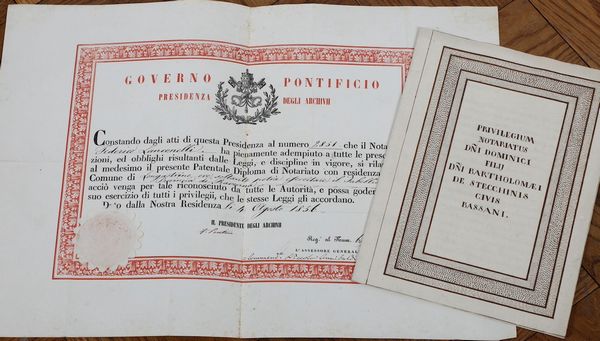 GOVERNO PONTIFICIO
PRESIDENZA DEGLI ARCHIVII
Constando dagli atti di questa Presidenza al numero 2851 che il Nota
Federico ha pienamente adempiuto a tutte le prese
zioni, ed obblighi risultanti dalle Leggi, e discipline in vigore, si rila
al medesimo il presente Patentale Diploma di Notariato con residenza
Comune di
acciò venga per tale riconosciuto da tutte le Autorità, e possa goder
suo esercizio di tutti i privilegii, che le stesse Leggi gli accordano.
Dato dalla Nostra Residenza li 4 Agosto 1856
IL PRESIDENTE DEGLI ARCHIVII
Reg. al Num.
L'ASSESSORE GENERAL
PRIVILEGIUM
NOTARIATUS
DÑI DOMINICI
FILII
DÑI BARTHOLOMÆI
DE STECCHINIS
CIVIS
BASSANI.